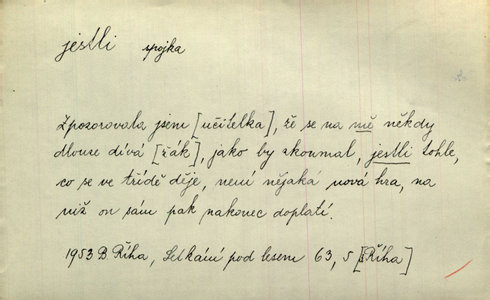 jestli spojka
Zpozorovala jsem [učitelka], že se na mě někdy
dlouze dívá [žák], jako by zkoumal, jestli tohle,
co se ve třídě děje, není nějaká nová hra, na
niž on sám pak nakonec doplatí.
1953 B. Říha, Setkání pod lesem 63, 5 [Říha]